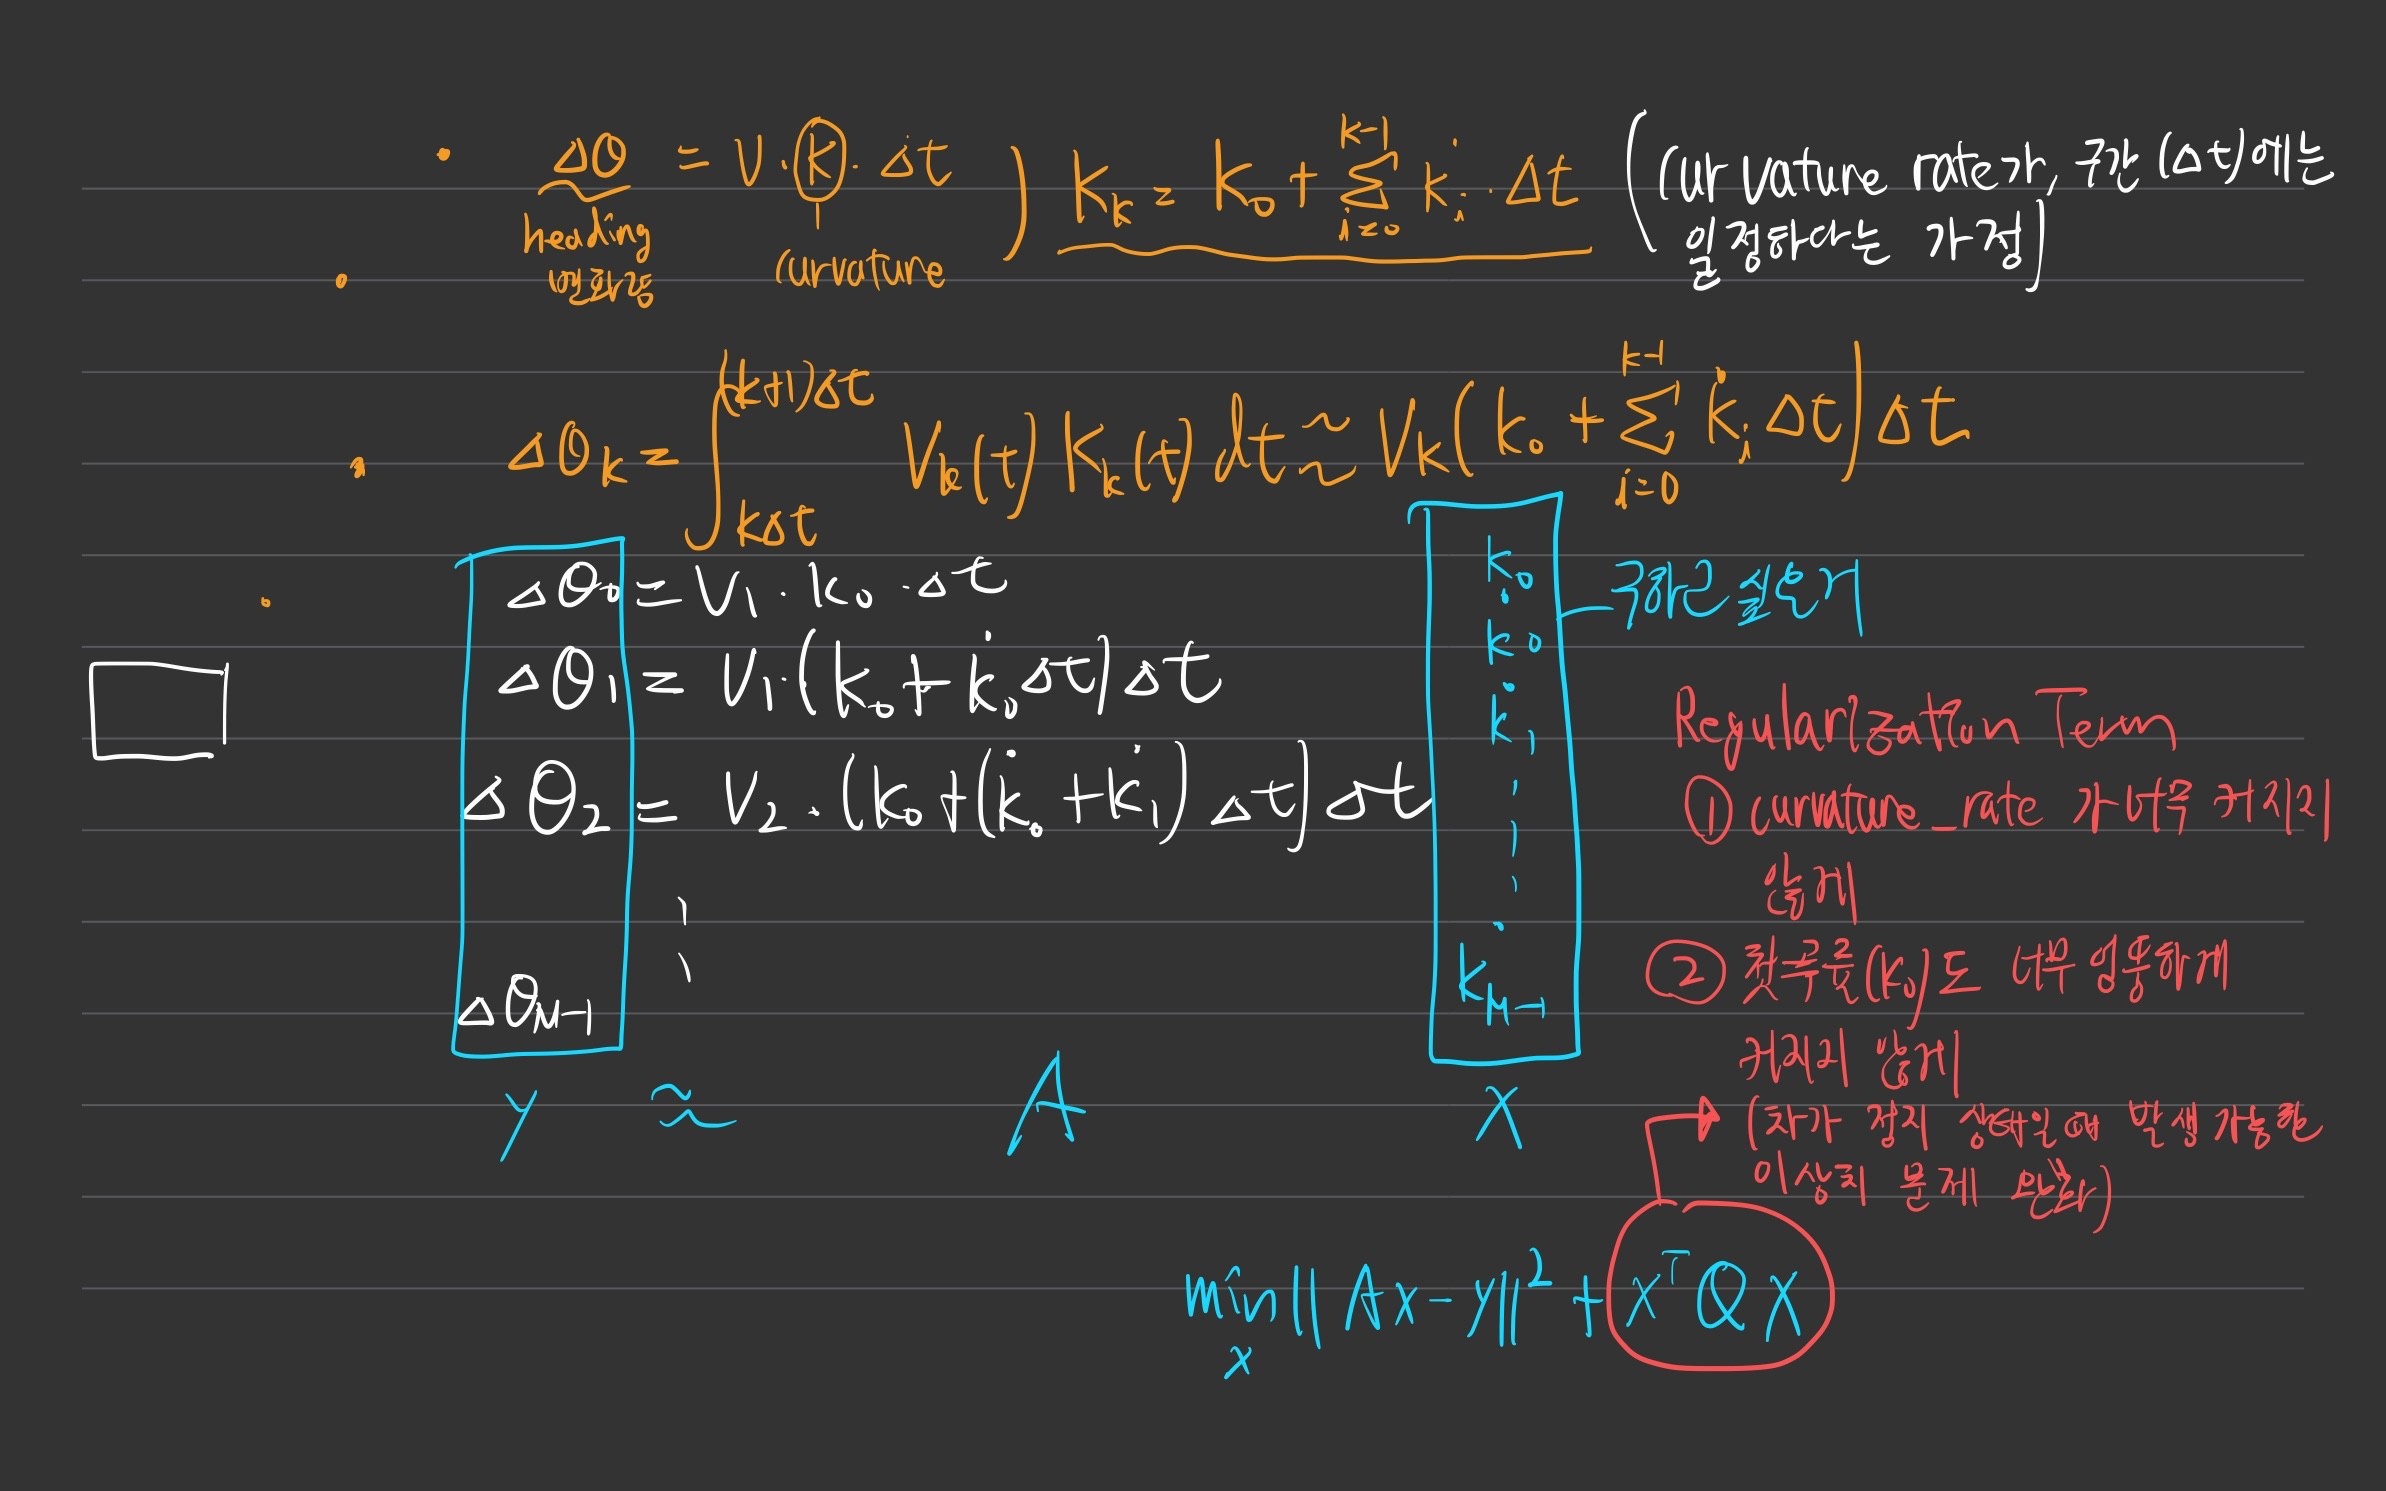 Δθ = V · k · Δt ) k_k = k_0 + Σ_{i=0}^{k-1} k̇_i · Δt (Curvature rate가, 구간 (Δt)에는
일정하다는 가정)
heading
변화량
curvature
Δθ_k = ∫_{kΔt}^{(k+1)Δt} V_k(t) k_k(t) dt ≈ V_k (k_0 + Σ_{i=0}^{k-1} k̇_i Δt) Δt
Δθ_0 = V_1 · k_0 · Δt
Δθ_1 = V_1 · (k_0 + k̇_0 Δt) Δt
Δθ_2 = V_2 · (k_0 + (k̇_0 + k̇_1) Δt) Δt
Δθ_{M-1}
k_0
k̇_0
k̇_1
k̇_{M-1}
구하고 싶은거
y ≈ A x
Regularization Term
① curvature_rate 가 너무 커지지
않게
② 곡률(k_0)도 너무
커지지 않게
(차가 정지 상태일 때 발생 가능한
이상치 문제 완화)
min_x ||Ax - y||² + xᵀQx